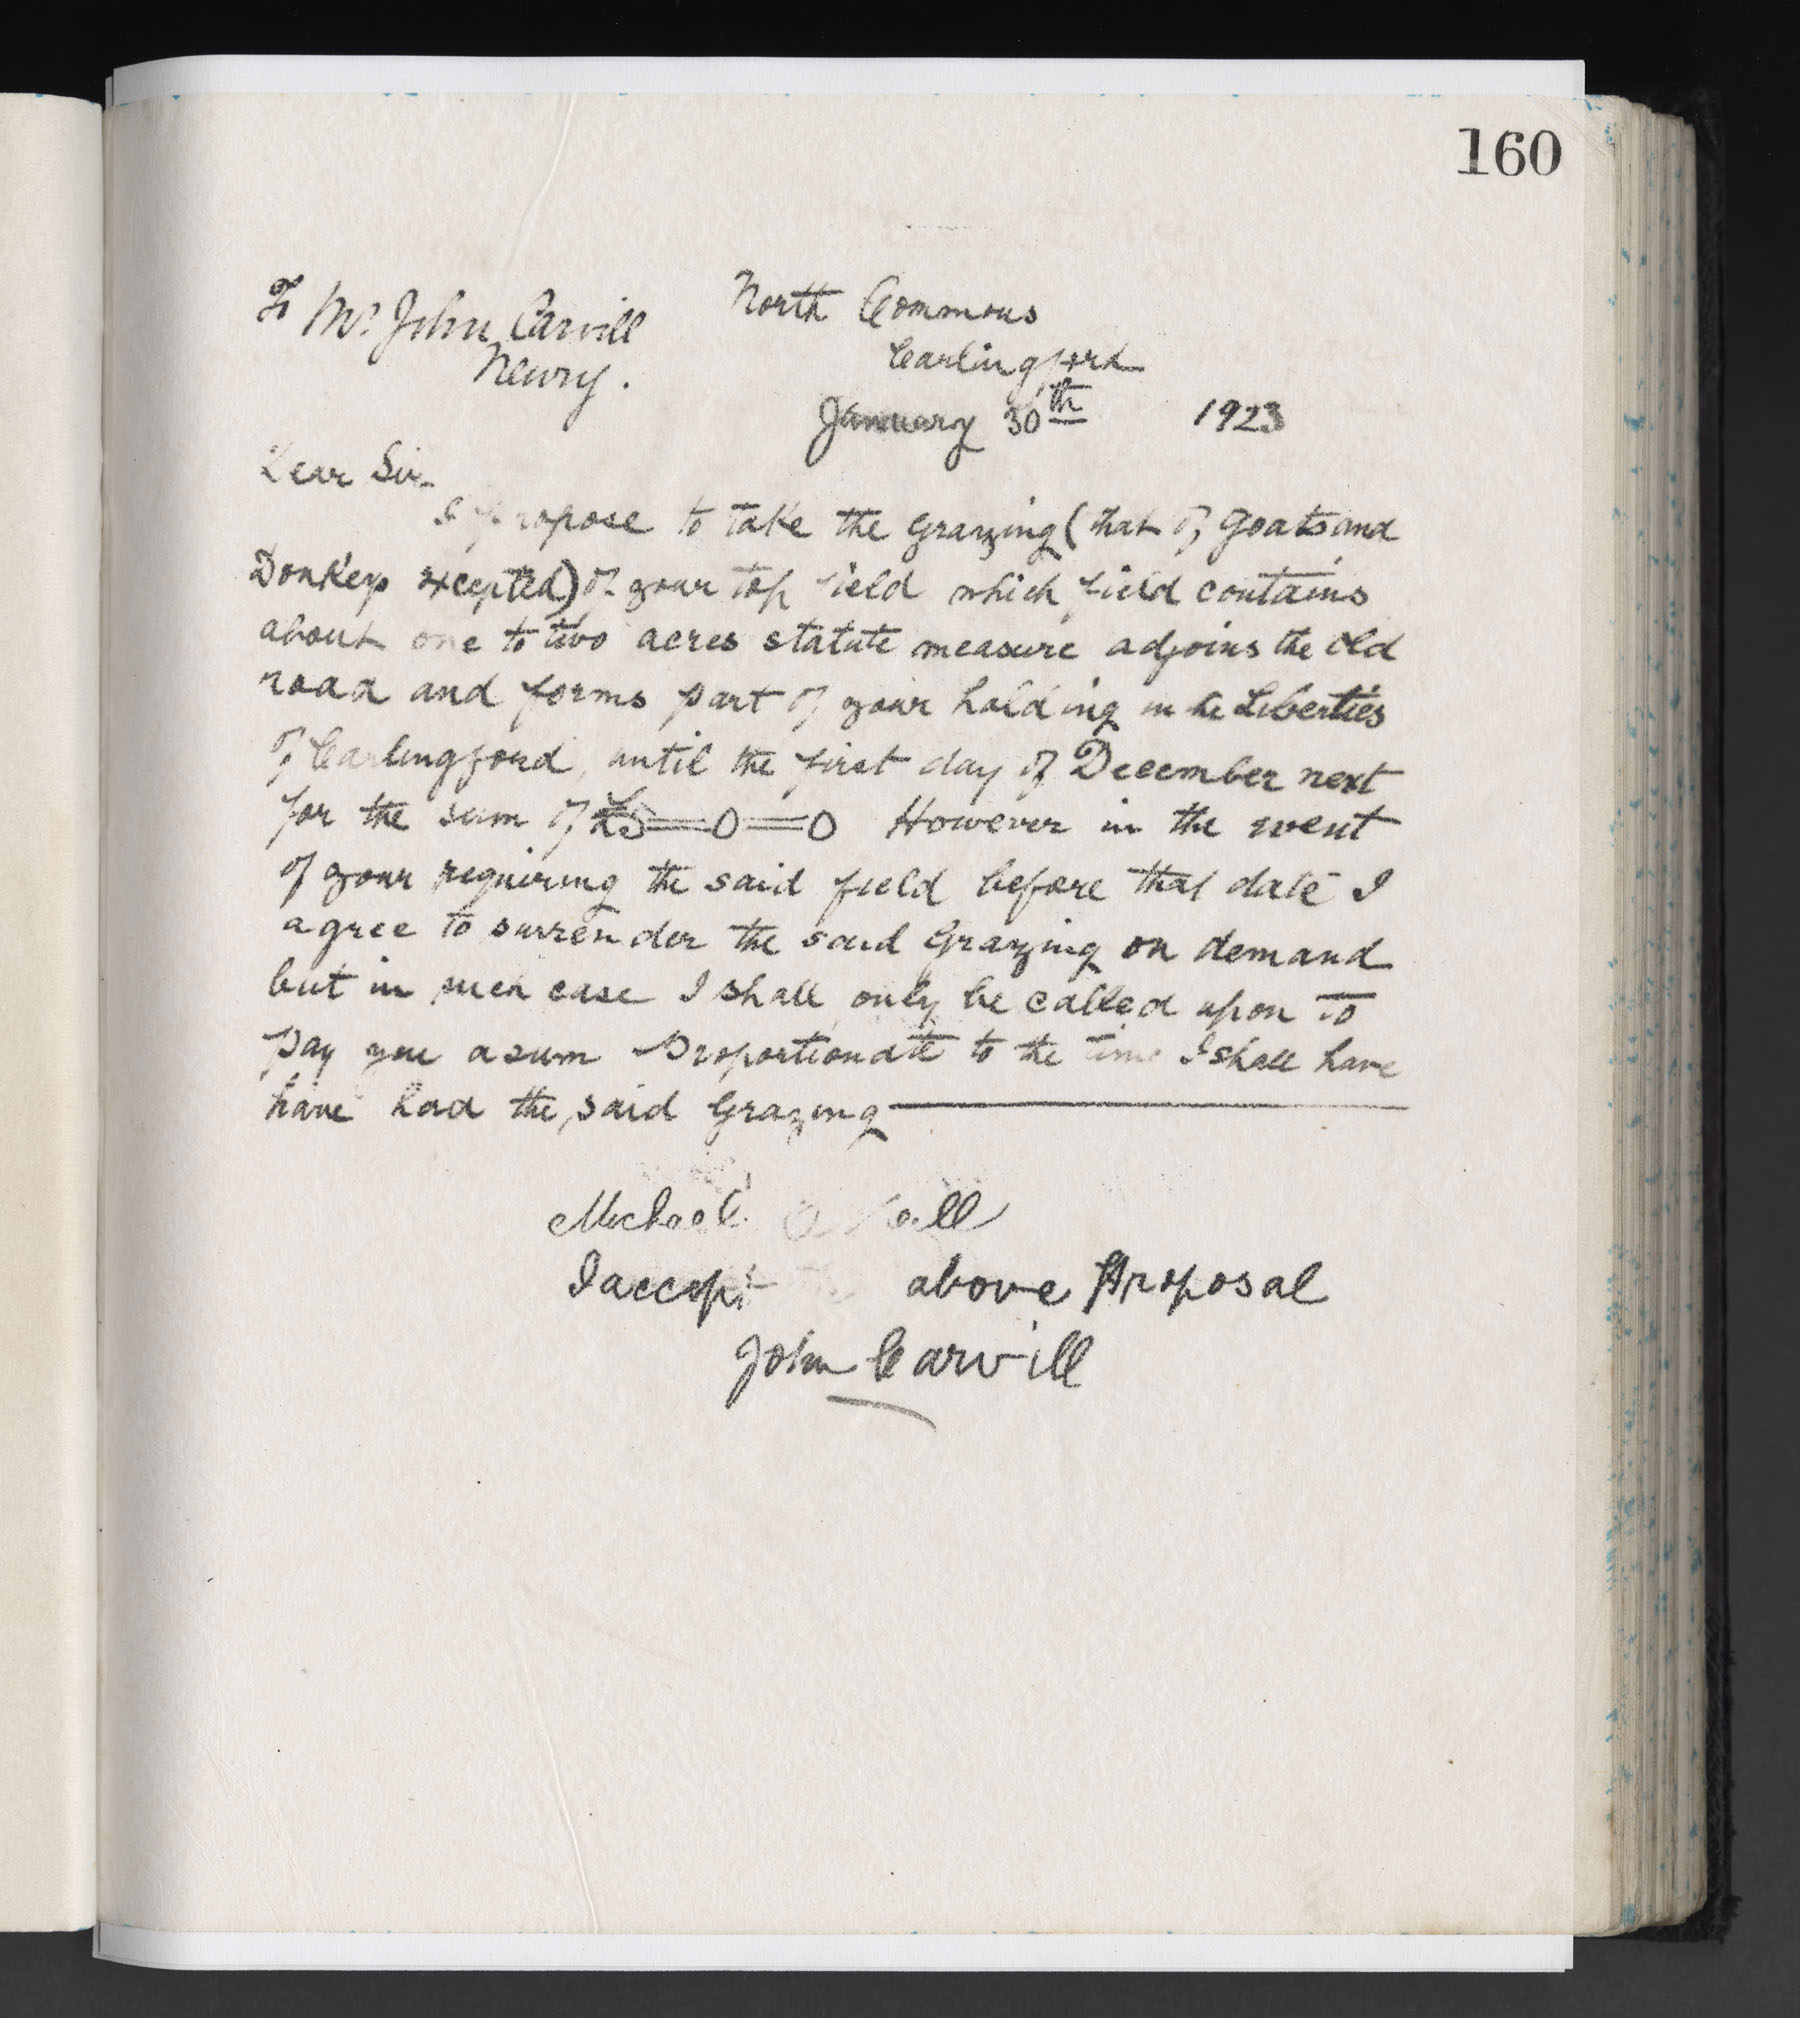 160
To Mr. John Carvill
Newry.
North Commons
Carlingford
January 30th 1923
Dear Sir
I propose to take the Grazing (that of Goats and
Donkeys excepted) of your top field which field contains
about one to two acres statute measure adjoins the old
road and forms part of your holding in the Liberties
of Carlingford, until the first day of December next
for the sum of £5=0=0 However in the event
of your requiring the said field before that date I
agree to surrender the said Grazing on demand
but in such case I shall only be called upon to
pay you a sum Proportionate to the time I shall have
have had the said Grazing
Michael
I accept above Proposal
John Carvill